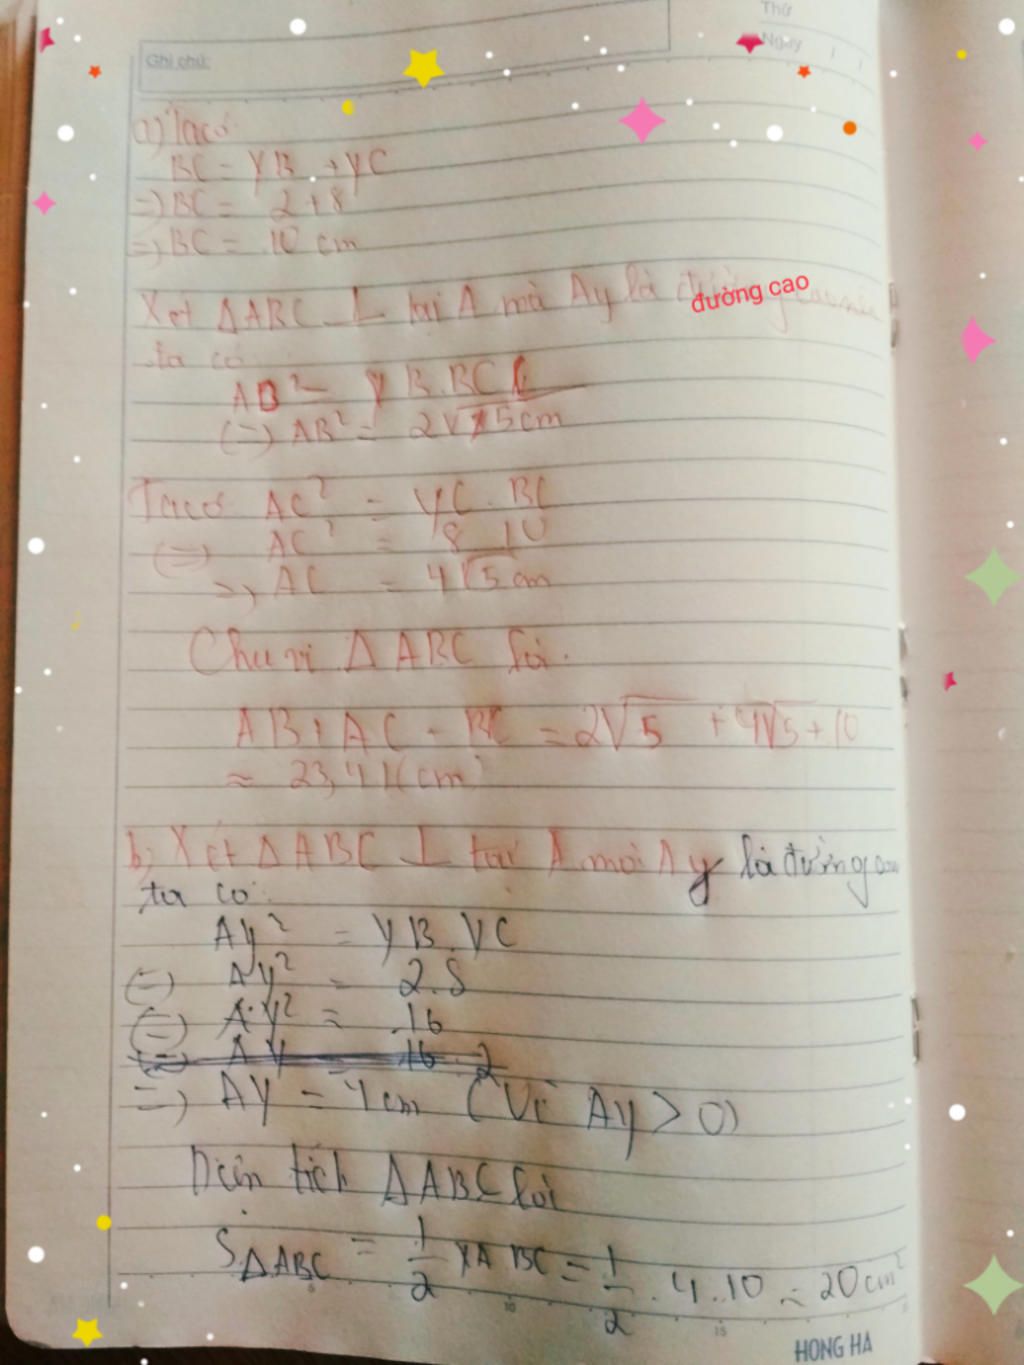 Thứ
Ngày / /
Ghi chú:
a) Ta có
BC = YB + YC
=> BC = 2+8
=> BC = 10 cm
Xét ΔABC ⊥ tại A mà Ay là đường cao
ta có
AB² = YB.BC
(=) AB² = 2√5cm
Ta có AC² = YC . BC
(=) AC² = 8 10
=> AC = 4√5 cm
Chu vi ΔABC là.
AB + AC + BC = 2√5 + 4√5 + 10
≈ 23,41(cm)
b) Xét ΔABC ⊥ tại A mà Ay là đường cao
ta có:
Ay² = YB.YC
(=) Ay² = 2.8
(=) AY² = 16
=> AY = 4cm (Vì Ay > 0)
Diện tích ΔABC là
S ΔABC = 1/2 YA BC = 1/2 . 4 . 10 = 20cm²
10 15
HONG HA